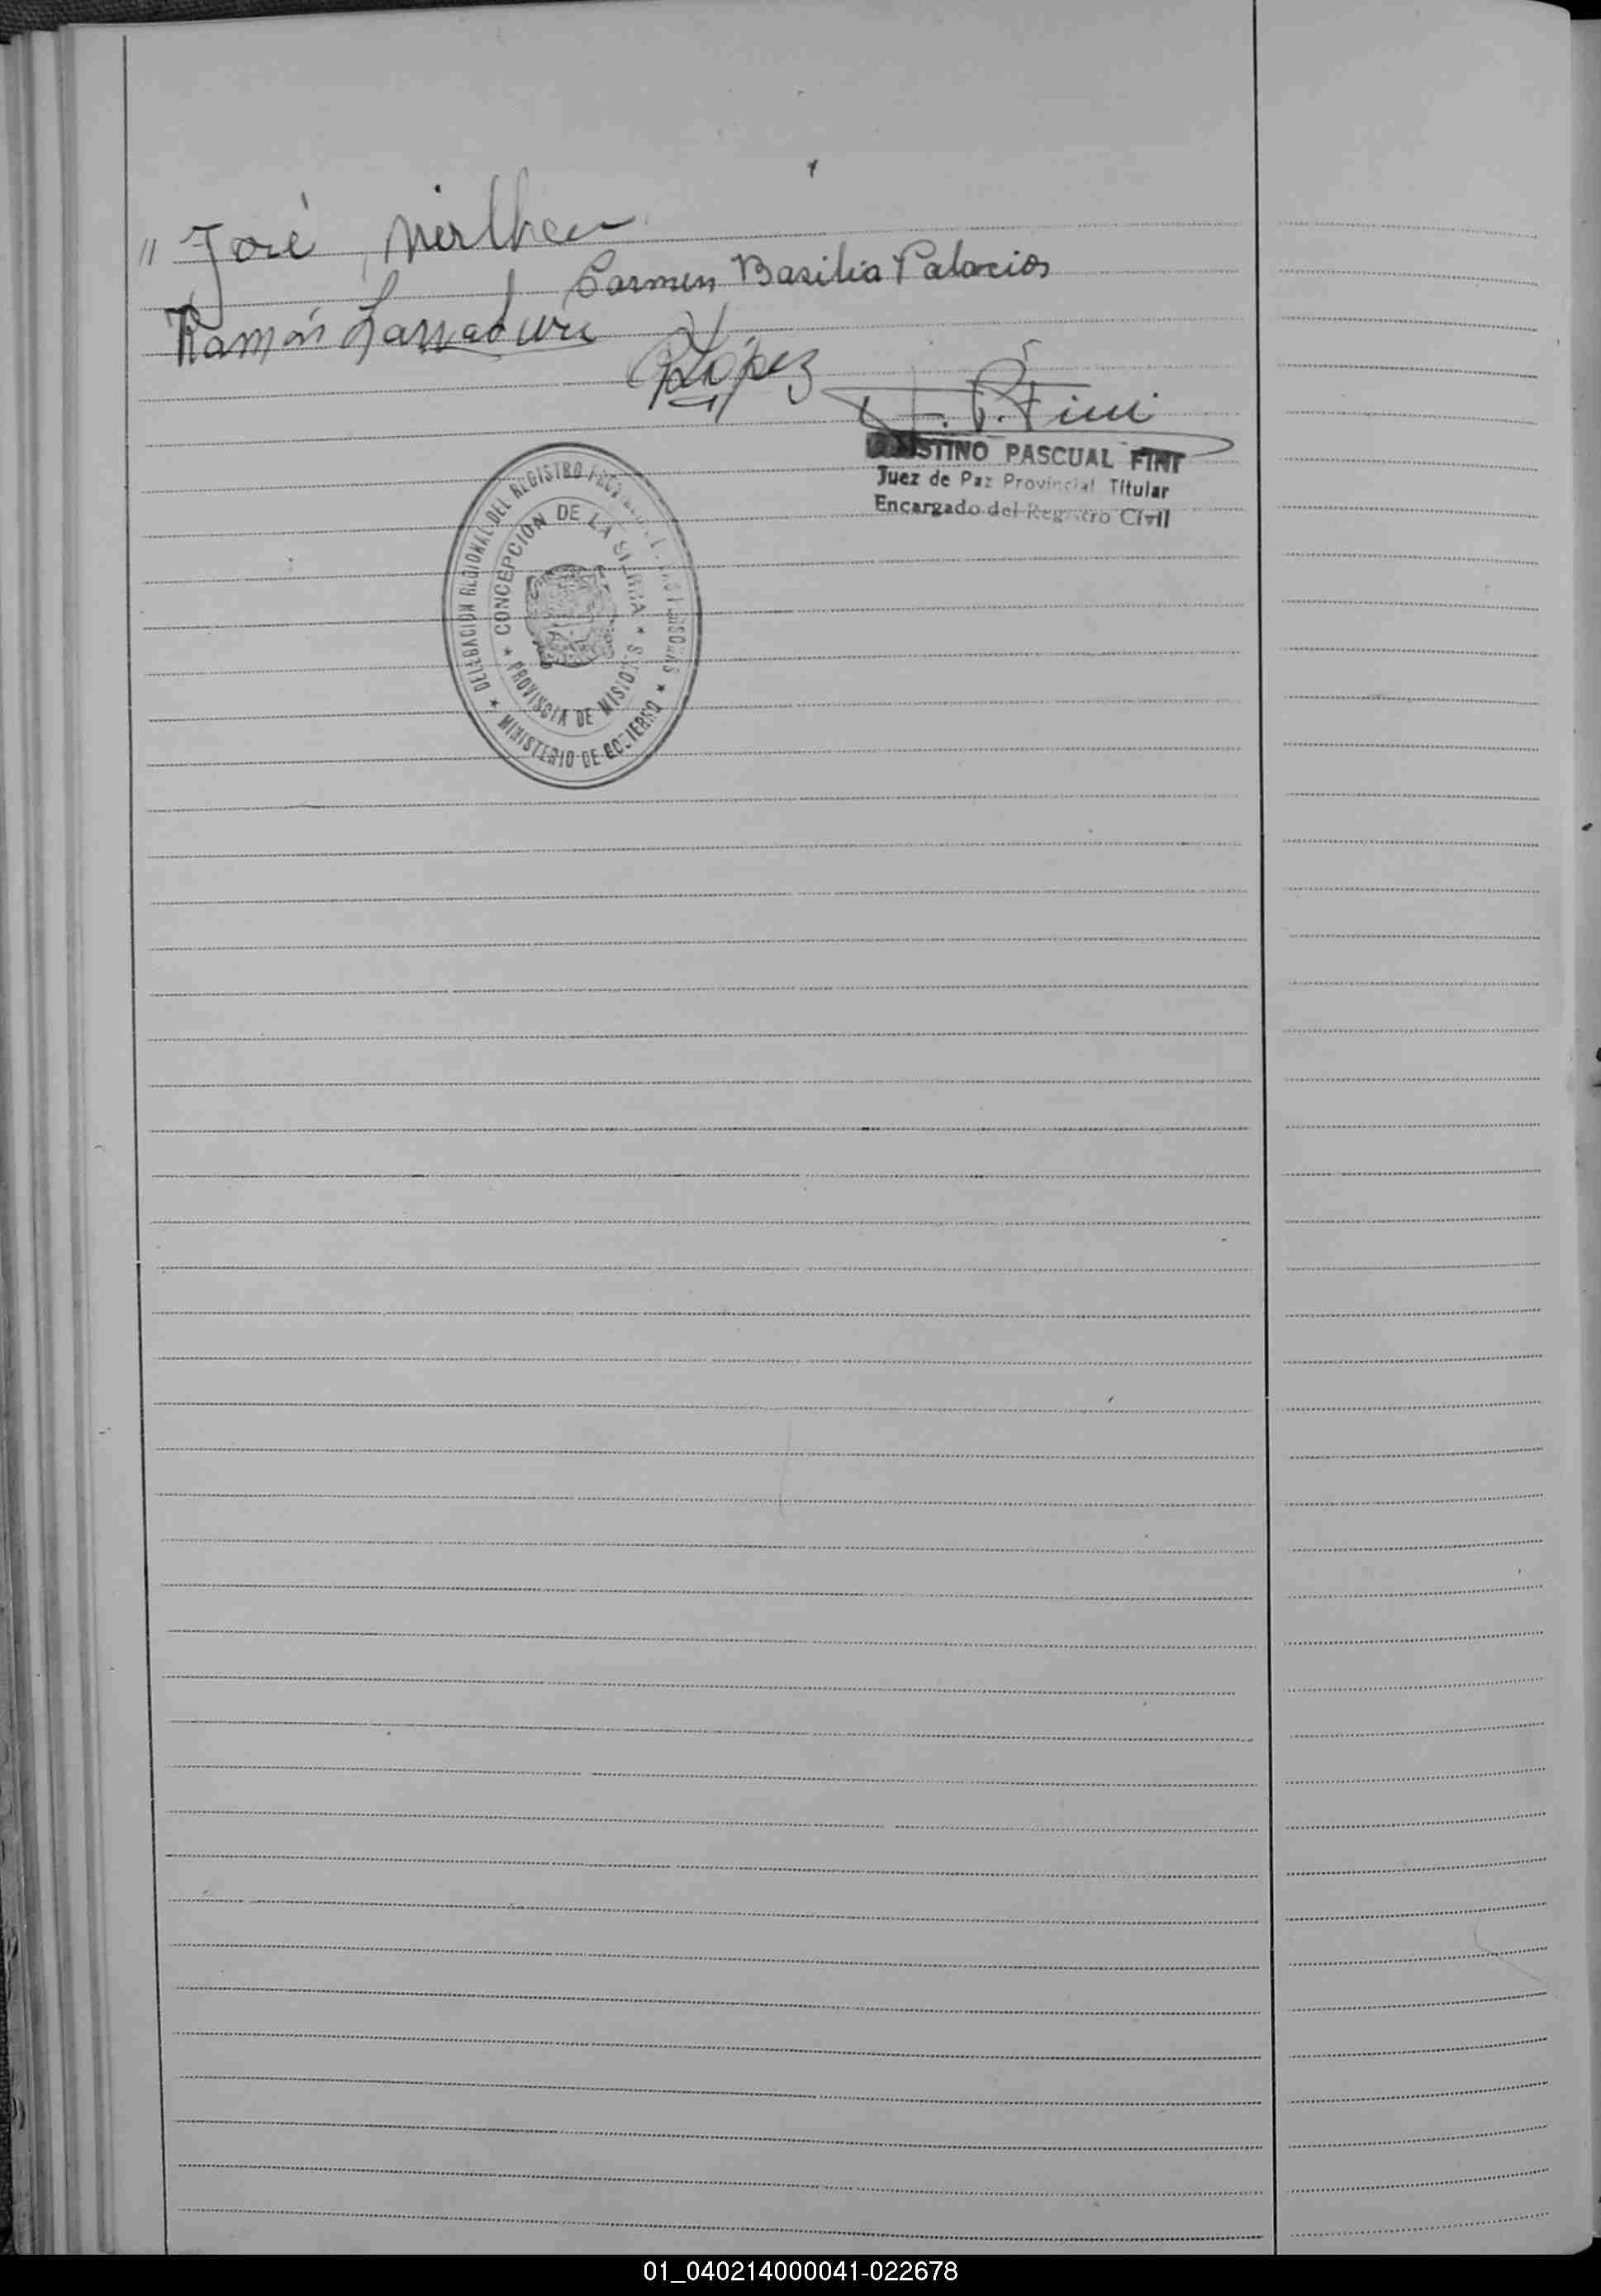 " José
Carmen Basilia Palacios
Ramón
López
F. P. Fini
STINO PASCUAL FINI
Juez de Paz Provincial Titular
Encargado del Registro Civil
DELEGACION REGIONAL DEL REGISTRO
CONCEPCION DE LA SIERRA
★ PROVINCIA DE MISIONES ★
★ MINISTERIO DE GOBIERNO ★
01_040214000041-022678